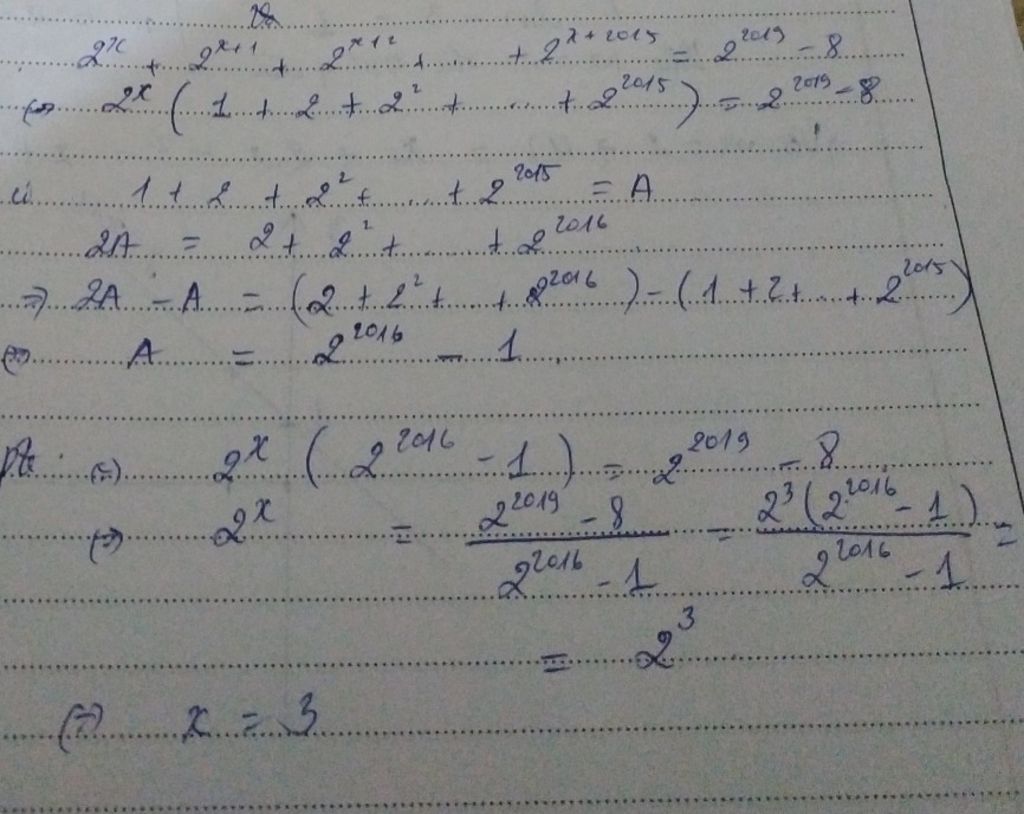 2^x + 2^{x+1} + 2^{x+2} + ..... + 2^{x+2015} = 2^{2019} - 8
(=) 2^x ( 1 + 2 + 2^2 + ..... + 2^{2015} ) = 2^{2019} - 8
1 + 2 + 2^2 + .... + 2^{2015} = A
2A = 2 + 2^2 + ..... + 2^{2016}
=> 2A - A = (2 + 2^2 + .. + 2^{2016}) - (1 + 2 + ... + 2^{2015})
(=) A = 2^{2016} - 1
Pt : (=) 2^x ( 2^{2016} - 1 ) = 2^{2019} - 8
(=) 2^x = \frac{2^{2019} - 8}{2^{2016} - 1} = \frac{2^3 (2^{2016} - 1)}{2^{2016} - 1} =
= 2^3
(=) x = 3